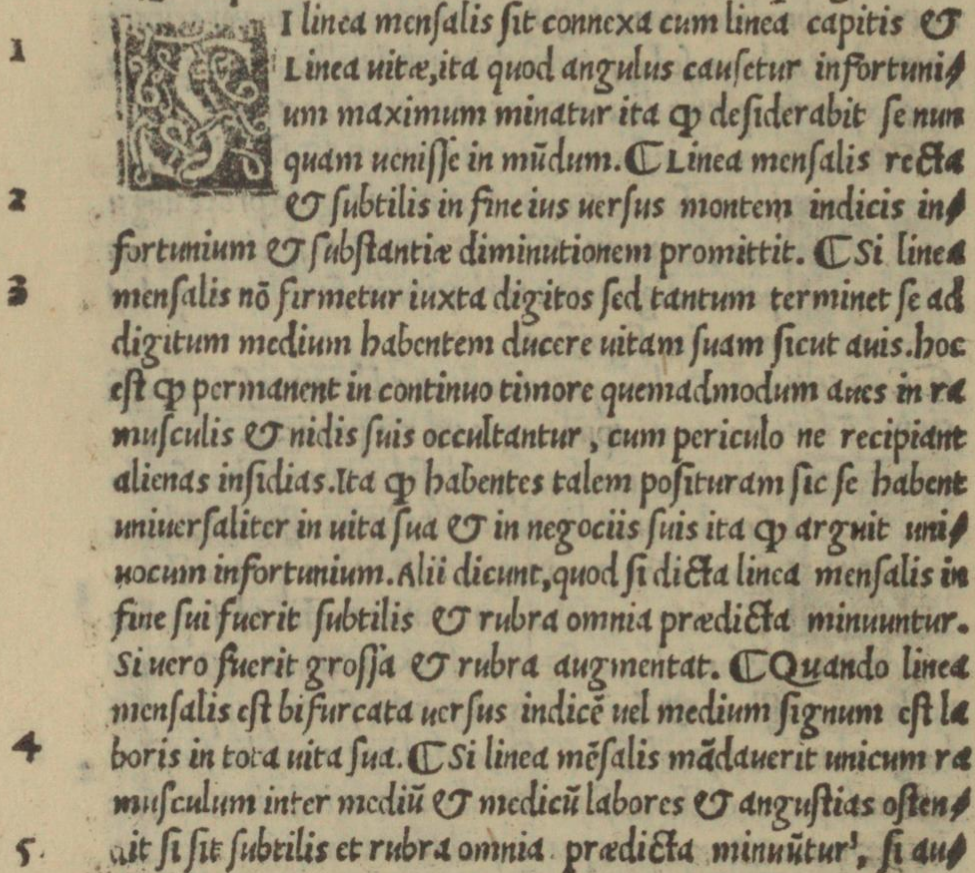 SI linea mensalis sit connexa cum linea capitis &
1
Linea uitæ, ita quod angulus causetur infortuni⸗
um maximum minatur ita ꝙ desiderabit se nun
quam uenisse in mũdum. ⸿ Linea mensalis recta
2
& subtilis in fine ius uersus montem indicis in⸗
fortunium & substantiæ diminutionem promittit. ⸿ Si linea
3
mensalis nõ firmetur iuxta digitos sed tantum terminet se ad
digitum medium habentem ducere uitam suam sicut auis. hoc
est ꝙ permanent in continuo timore quemadmodum aues in ra
musculis & nidis suis occultantur, cum periculo ne recipiant
alienas insidias. Ita ꝙ habentes talem posituram sic se habent
uniuersaliter in uita sua & in negociis suis ita ꝙ arguit uni⸗
uocum infortunium. Alii dicunt, quod si dicta linea mensalis in
fine sui fuerit subtilis & rubra omnia prædicta minuuntur.
Si uero fuerit grossa & rubra augmentat. ⸿ Quando linea
mensalis est bifurcata uersus indicẽ uel medium signum est la
4
boris in tota uita sua. ⸿ Si linea mẽsalis mãdauerit unicum ra
musculum inter mediũ & medicũ labores & angustias osten⸗
5
dit si sit subtilis et rubra omnia prædicta minuũtur, si au⸗